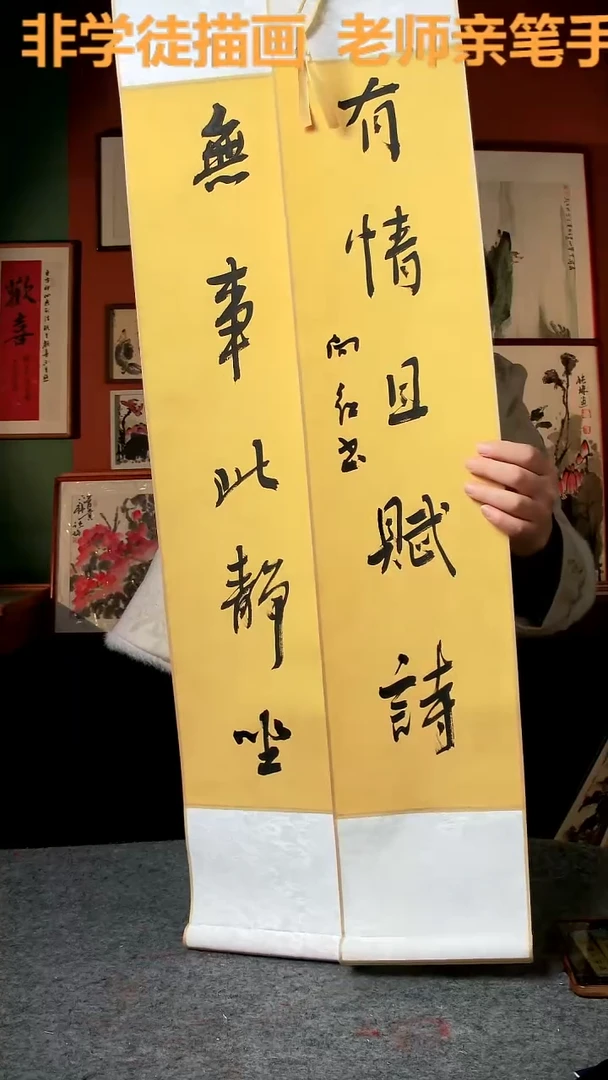 非学徒描画 老师亲笔手
無事此靜坐
有情且賦詩
歡喜